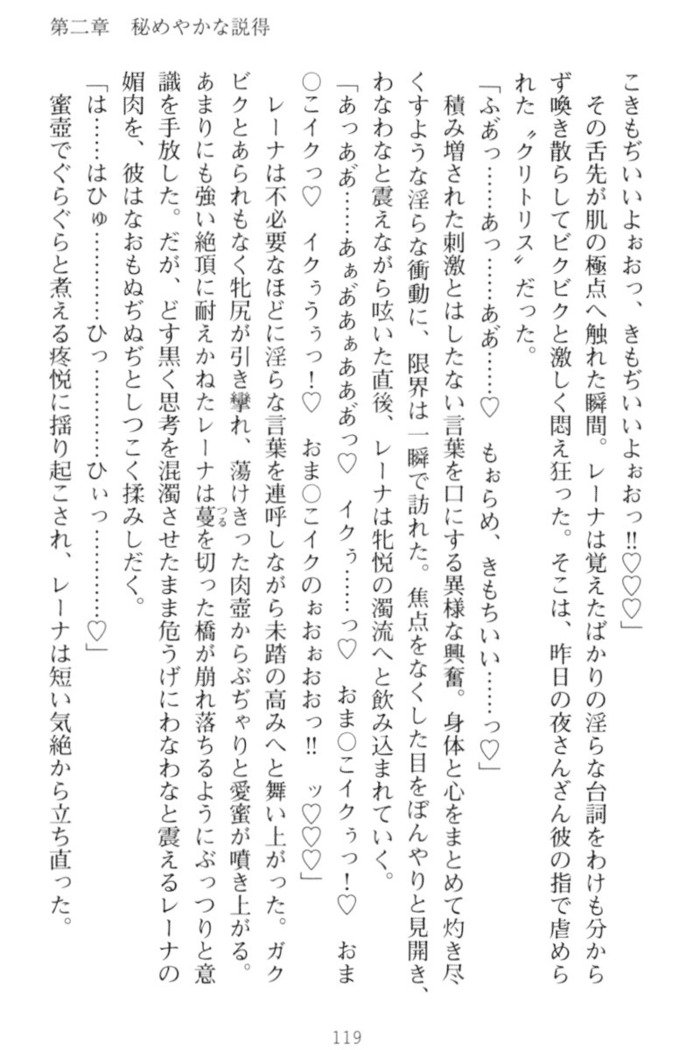 第二章　秘めやかな説得
こきもぢいいよぉおっ、きもぢいいよぉおっ!!♡♡♡」
　その舌先が肌の極点へ触れた瞬間。レーナは覚えたばかりの淫らな台詞をわけも分から
ず喚き散らしてビクビクと激しく悶え狂った。そこは、昨日の夜さんざん彼の指で虐めら
れた〝クリトリス〟だった。
「ふあ゛っ……あっ……ああ゛……♡　もぉらめ、きもちいい……っ♡」
　積み増された刺激とはしたない言葉を口にする異様な興奮。身体と心をまとめて灼き尽
くすような淫らな衝動に、限界は一瞬で訪れた。焦点をなくした目をぼんやりと見開き、
わなわなと震えながら呟いた直後、レーナは牝悦の濁流へと飲み込まれていく。
「あっあ゛……あぁあ゛あぁああ゛っ♡　イクぅ……っ♡　おま〇こイクぅっ！♡　おま
〇こイクっ♡　イクぅうぅっ！♡　おま〇こイクのぉおぉおおっ!!　ッ♡♡♡」
　レーナは不必要なほどに淫らな言葉を連呼しながら未踏の高みへと舞い上がった。ガク
ビクとあられもなく牝尻が引き攣れ、蕩けきった肉壺からぶぢゃりと愛蜜が噴き上がる。
あまりにも強い絶頂に耐えかねたレーナは蔓つるを切った橋が崩れ落ちるようにぶっつりと意
識を手放した。だが、どす黒く思考を混濁させたまま危うげにわなわなと震えるレーナの
媚肉を、彼はなおもぬぢぬぢとしつこく揉みしだく。
「は……はひゅ…………ひっ…………ひぃっ…………♡」
　蜜壺でぐらぐらと煮える疼悦に揺り起こされ、レーナは短い気絶から立ち直った。
119